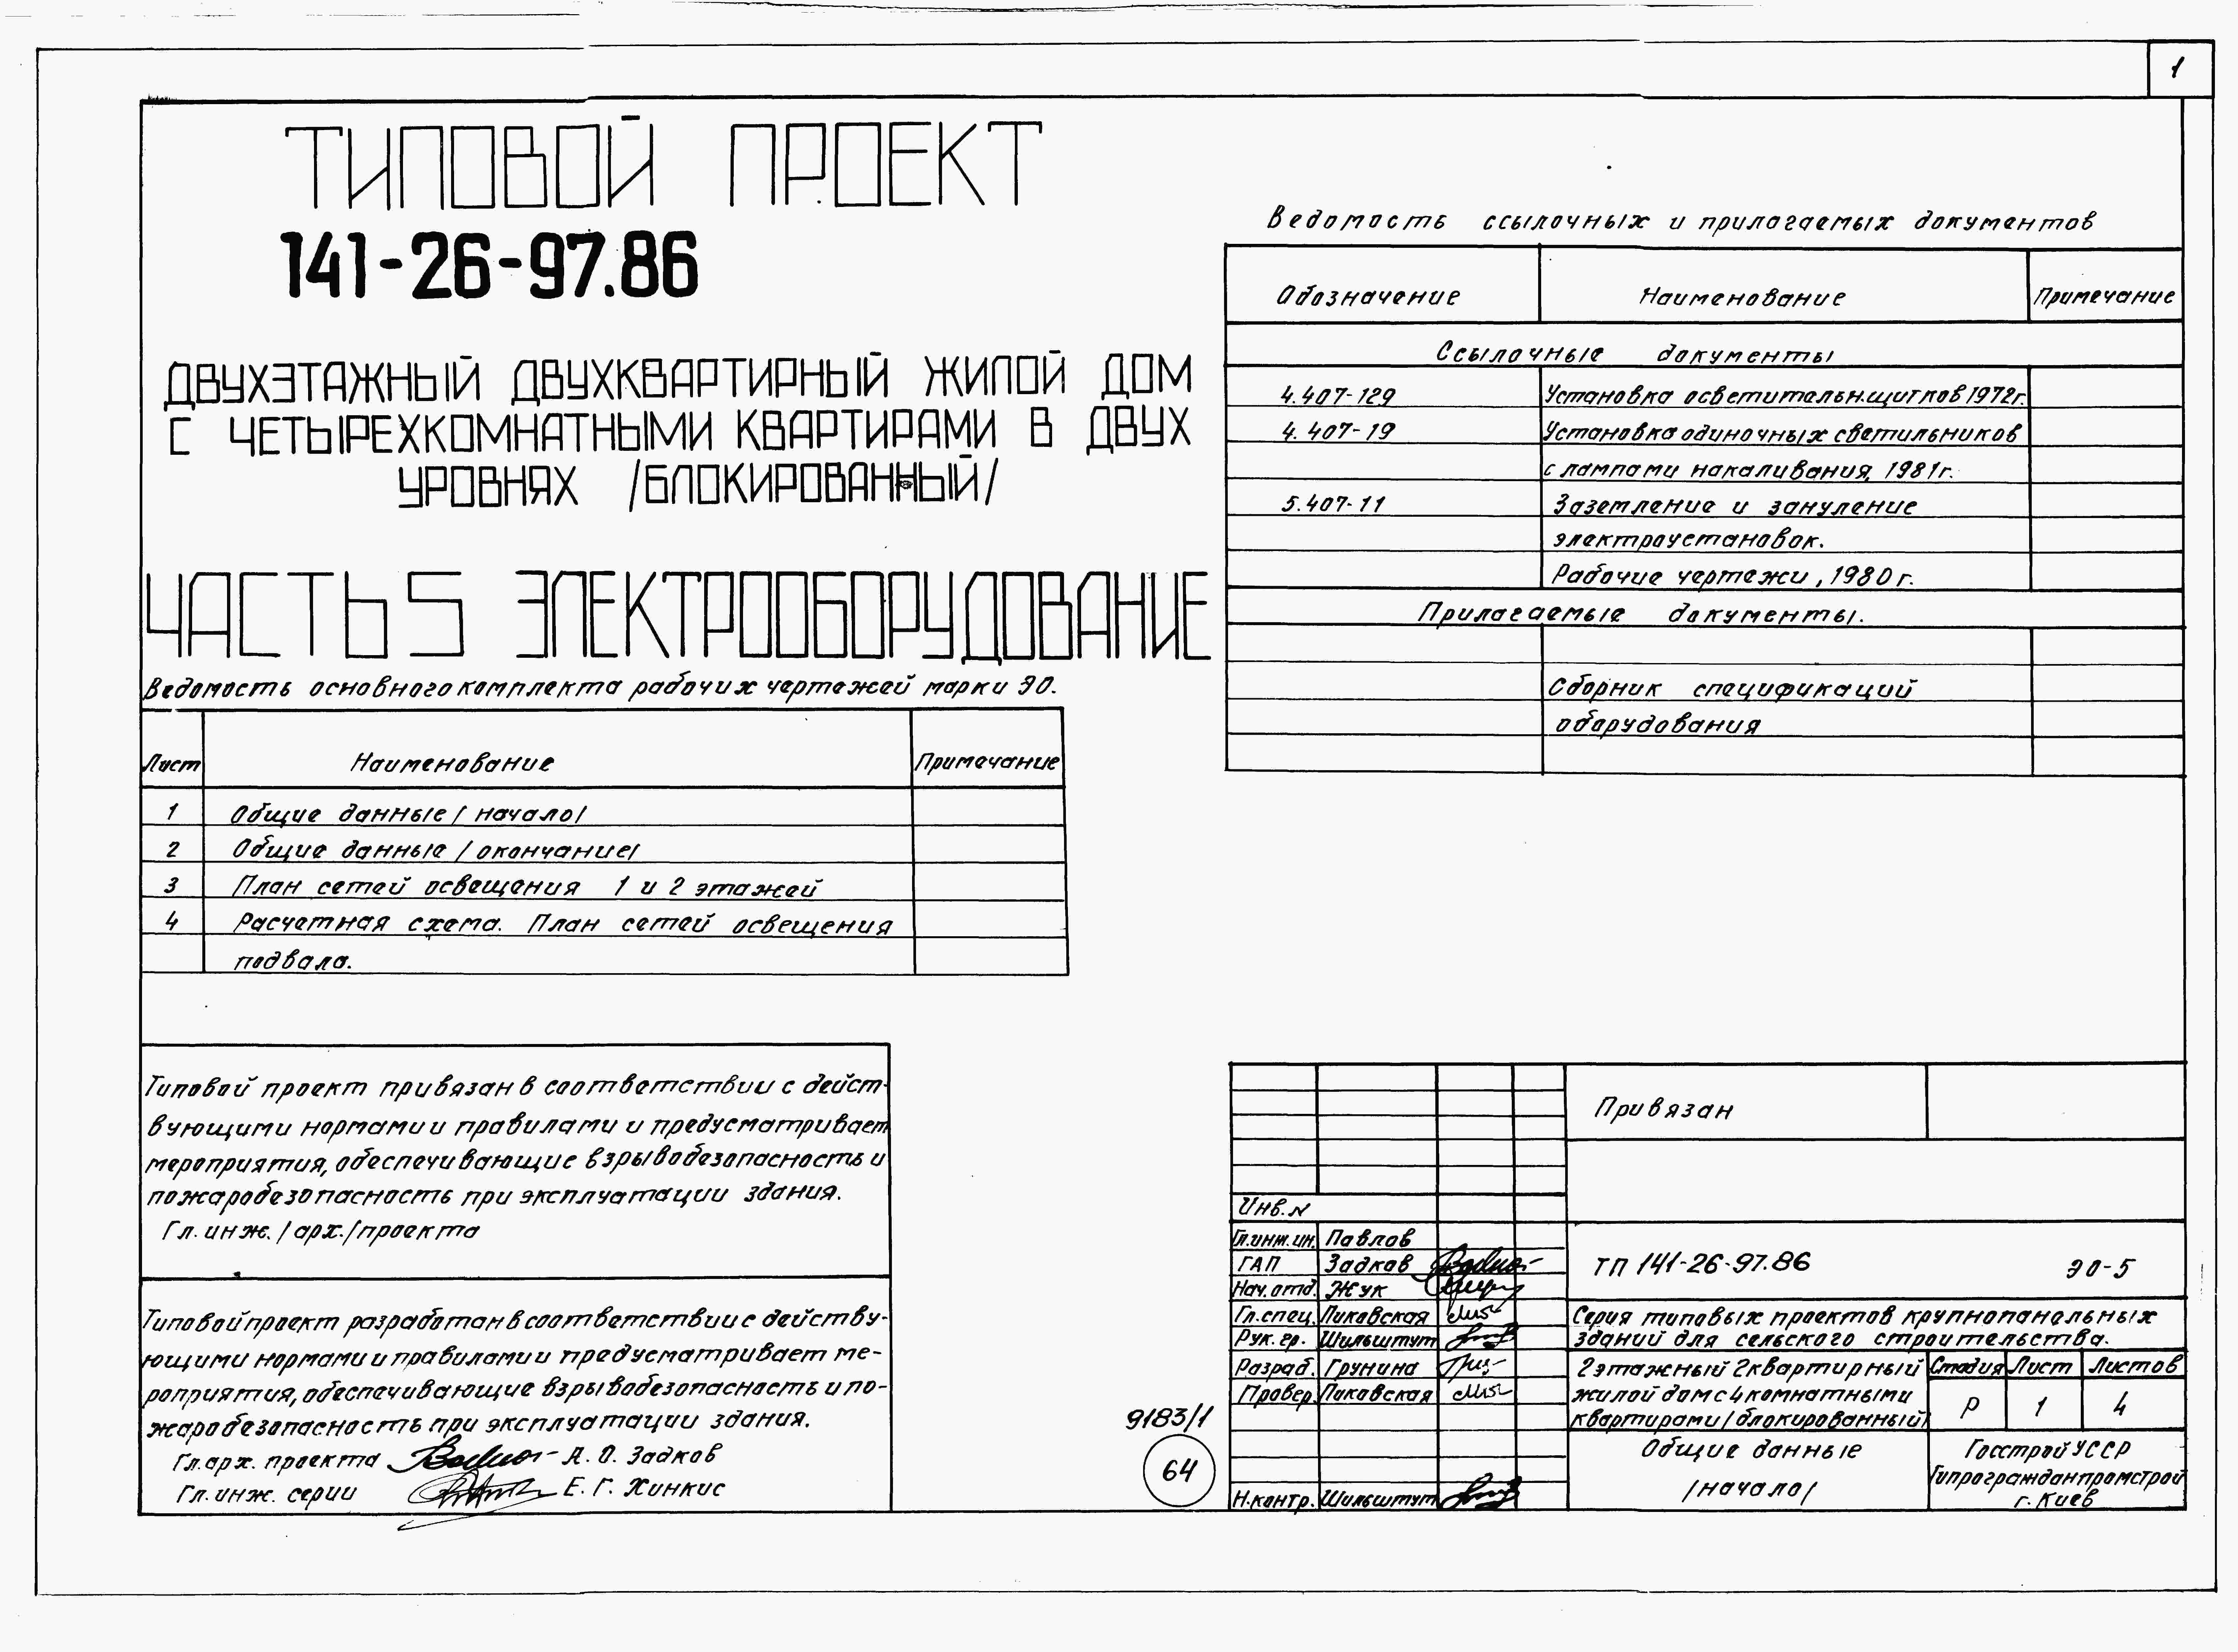 1
ТИПОВОЙ ПРОЕКТ
141-26-97.86
ДВУХЭТАЖНЫЙ ДВУХКВАРТИРНЫЙ ЖИЛОЙ ДОМ
С ЧЕТЫРЕХКОМНАТНЫМИ КВАРТИРАМИ В ДВУХ
УРОВНЯХ /БЛОКИРОВАННЫЙ/
ЧАСТЬ 5 ЭЛЕКТРООБОРУДОВАНИЕ
Ведомость основного комплекта рабочих чертежей марки ЭО.
Лист Наименование Примечание
1 Общие данные /начало/
2 Общие данные /окончание/
3 План сетей освещения 1 и 2 этажей
4 Расчетная схема. План сетей освещения
подвала.
Типовой проект привязан в соответствии с дейст-
вующими нормами и правилами и предусматривает
мероприятия, обеспечивающие взрывобезопасность и
пожаробезопасность при эксплуатации здания.
Гл. инж. /арх./ проекта
Типовой проект разработан в соответствии с действу-
ющими нормами и правилами и предусматривает ме-
роприятия, обеспечивающие взрывобезопасность и по-
жаробезопасность при эксплуатации здания.
Гл. арх. проекта А. О. Задков
Гл. инж. серии Е. Г. Хинкис
Ведомость ссылочных и прилагаемых документов
Обозначение Наименование Примечание
Ссылочные документы
4.407-129 Установка осветительн.щитков 1972г.
4.407-19 Установка одиночных светильников
с лампами накаливания, 1981г.
5.407-11 Заземление и зануление
электроустановок.
Рабочие чертежи, 1980г.
Прилагаемые документы.
Сборник спецификаций
оборудования
9183/1
64
Привязан
Инв.N
Гл.инж.ин. Павлов
ГАП Задков
Нач.отд. Жук
Гл.спец. Пиковская
Рук. гр. Шильштут
Разраб. Грунина
Провер. Пиковская
Н.контр. Шильштут
ТП 141-26-97.86 ЭО-5
Серия типовых проектов крупнопанельных
зданий для сельского строительства.
2этажный 2квартирный
жилой дом с 4комнатными
квартирами /блокированный/
Стадия Лист Листов
Р 1 4
Общие данные
/начало/
Госстрой УССР
Гипрогражданпромстрой
г. Киев